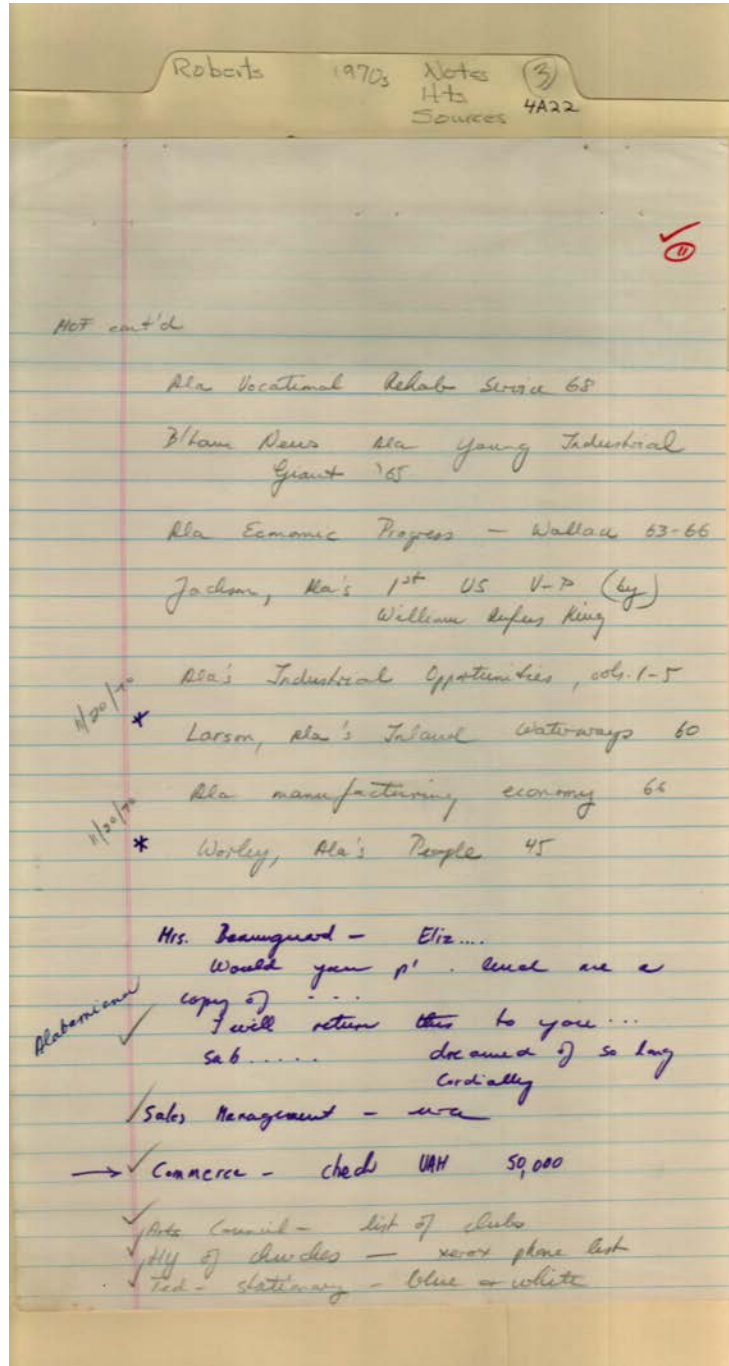 Roberts 1970s Notes 3
Hts 4A22
Sources
11
cont'd
Ala Vocational Rehab Service 68
B'ham News Ala Young Industrial
Giant '65
Ala Economic Progress — Wallace 63-66
Jackson, Ala's 1st US V-P (by)
William Rufus King
11/20/70
Ala's Industrial Opportunities, vols. 1-5
* Larson, Ala's Inland Waterways 60
11/20/70
Ala manufacturing economy 66
* Worley, Ala's People 45
Mrs. — Eliz....
Would you p' . lend me a
copy of . . .
Alabamiana
I will return this to you...
sab..... dreamed of so long
Cordially
Sales Management —
→ Commerce — check UAH 50,000
Arts Council — list of clubs
Hy of churches — xerox phone list
Ted — stationary — blue or white